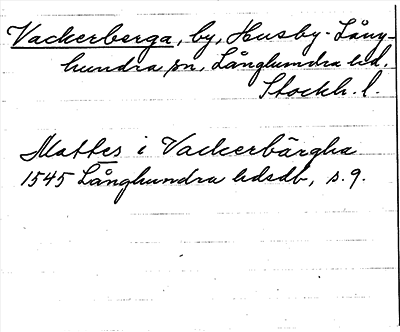 Vackerberga, by, Husby-Lång-
hundra sn, Långhundra hd,
Stockh. l.
Mattes i Vackerbärgha
1545 Långhundra hdsdb, s. 9.